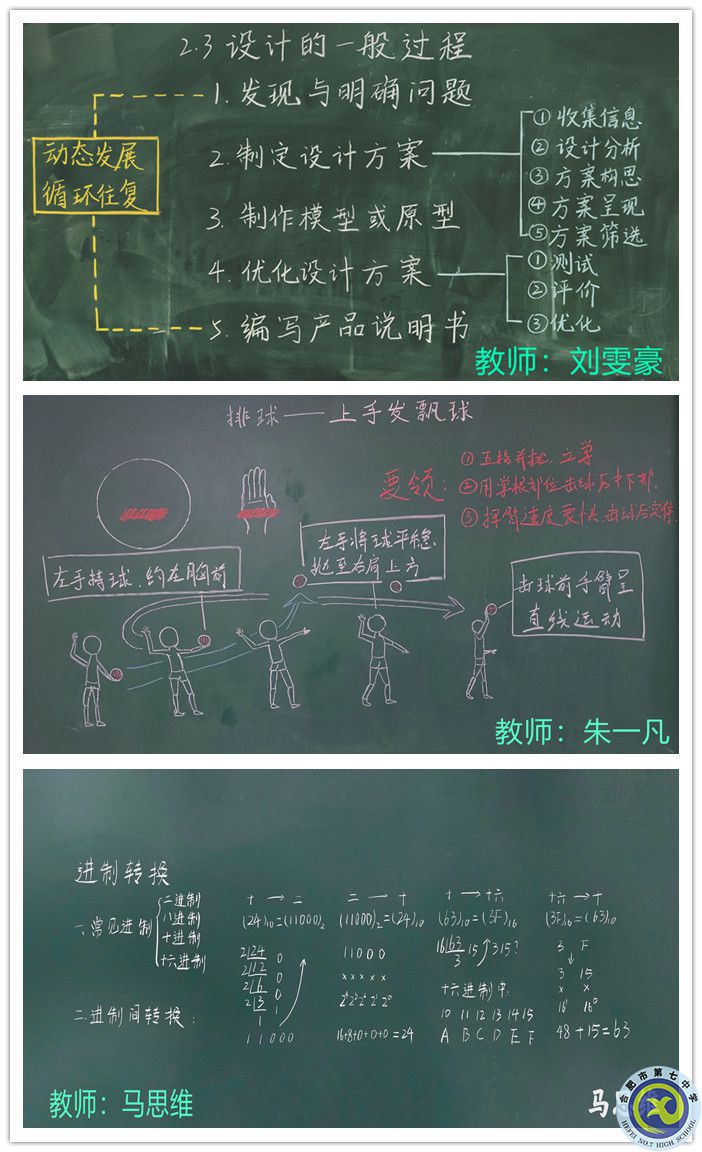 2.3 设计的一般过程
1. 发现与明确问题
动态发展
循环往复
2. 制定设计方案
① 收集信息
② 设计分析
③ 方案构思
④ 方案呈现
⑤ 方案筛选
3. 制作模型或原型
4. 优化设计方案
① 测试
② 评价
③ 优化
5. 编写产品说明书
教师：刘雯豪
排球——上手发飘球
要领：
① 五指并拢，立掌
② 用掌根部位击球后中下部.
③ 挥臂速度要快，击球后突停.
左手持球，约左胸前
左手将球平稳
抛至右肩上方
击球前手臂呈
直线运动
教师：朱一凡
进制转换
一.常见进制
二进制
八进制
十进制
十六进制
二.进制间转换：
十→二
(24)₁₀=(11000)₂
2|24 0
2|12 0
2|6 0
2|3 1
1
11000
二→十
(11000)₂=(24)₁₀
11000
×××××
2⁴2³2²2¹2⁰
16+8+0+0+0=24
十→十六
(63)₁₀=(3F)₁₆
16|63 15 315?
3
十六进制中:
10 11 12 13 14 15
A B C D E F
十六→十
(3F)₁₆=(63)₁₀
3 F
↓
3 15
× ×
16¹ 16⁰
48+15=63
教师：马思维
马
合肥市第七中学
HEFEI NO.7 HIGH SCHOOL